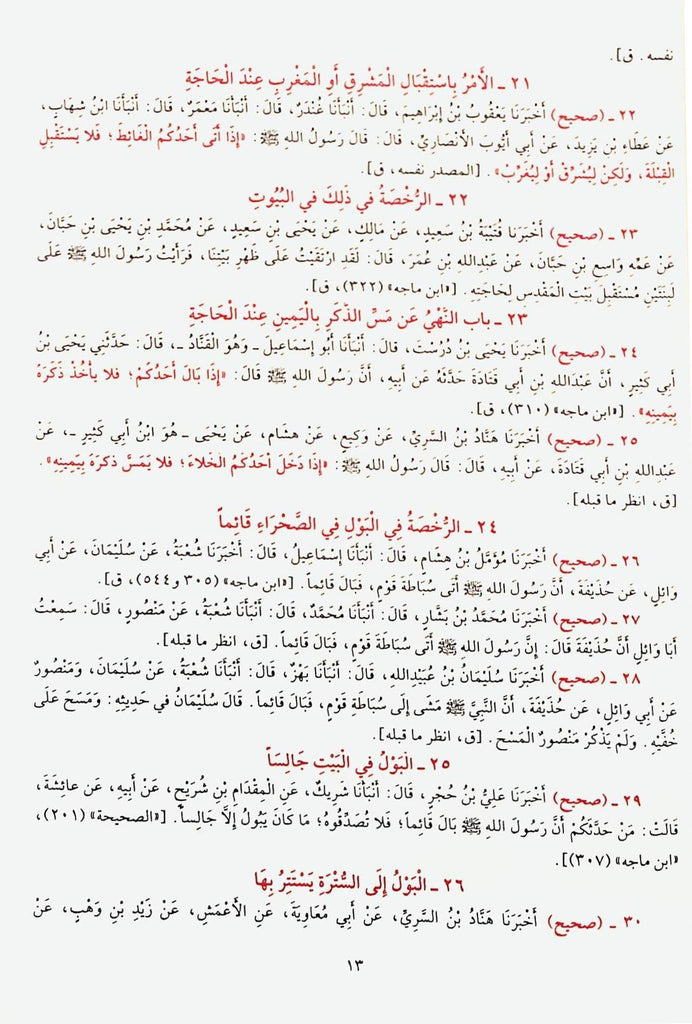 نفسه. ق].
٢١ ـ الأَمْرُ بِاسْتِقْبَالِ الْمَشْرِقِ أَوِ الْمَغْرِبِ عِنْدَ الْحَاجَةِ
٢٢ ـ (صحيح) أَخْبَرَنَا يَعْقُوبُ بْنُ إِبْرَاهِيمَ، قَالَ: أَنْبَأَنَا غُنْدَرٌ، قَالَ: أَنْبَأَنَا مَعْمَرٌ، قَالَ: أَنْبَأَنَا ابْنُ شِهَابٍ،
عَنْ عَطَاءِ بْنِ يَزِيدَ، عَنْ أَبِي أَيُّوبَ الأَنْصَارِيِّ، قَالَ: قَالَ رَسُولُ اللهِ ﷺ: «إِذَا أَتَى أَحَدُكُمُ الْغَائِطَ؛ فَلا يَسْتَقْبِلِ
الْقِبْلَةَ، وَلَكِنْ لِيُشَرِّقْ أَوْ لِيُغَرِّبْ». [المصدر نفسه، ق].
٢٢ ـ الرُّخْصَةُ فِي ذَلِكَ فِي الْبُيُوتِ
٢٣ ـ (صحيح) أَخْبَرَنَا قُتَيْبَةُ بْنُ سَعِيدٍ، عَنْ مَالِكٍ، عَنْ يَحْيَى بْنِ سَعِيدٍ، عَنْ مُحَمَّدِ بْنِ يَحْيَى بْنِ حَبَّانَ،
عَنْ عَمِّهِ وَاسِعِ بْنِ حَبَّانَ، عَنْ عَبْدِاللهِ بْنِ عُمَرَ، قَالَ: لَقَدِ ارْتَقَيْتُ عَلَى ظَهْرِ بَيْتِنَا، فَرَأَيْتُ رَسُولَ اللهِ ﷺ عَلَى
لَبِنَتَيْنِ مُسْتَقْبِلَ بَيْتِ الْمَقْدِسِ لِحَاجَتِهِ. [«ابن ماجه» (٣٢٢)، ق].
٢٣ ـ باب النَّهْيُ عَن مَسِّ الذَّكَرِ بِالْيَمِينِ عِنْدَ الْحَاجَةِ
٢٤ ـ (صحيح) أَخْبَرَنَا يَحْيَى بْنُ دُرُسْتَ، قَالَ: أَنْبَأَنَا أَبُو إِسْمَاعِيلَ ـ وَهُوَ الْقَنَّادُ ـ، قَالَ: حَدَّثَنِي يَحْيَى بْنُ
أَبِي كَثِيرٍ، أَنَّ عَبْدَاللهِ بْنَ أَبِي قَتَادَةَ حَدَّثَهُ عَن أَبِيهِ، أَنَّ رَسُولَ اللهِ ﷺ قَالَ: «إِذَا بَالَ أَحَدُكُمْ؛ فلا يأخُذْ ذَكَرَهُ
بِيَمِينِهِ». [«ابن ماجه» (٣١٠)، ق].
٢٥ ـ (صحيح) أَخْبَرَنَا هَنَّادُ بْنُ السَّرِيِّ، عَنْ وَكِيعٍ، عَنْ هِشَام، عَنْ يَحْيَى ـ هُوَ ابْنُ أَبِي كَثِيرٍ ـ، عَنْ
عَبْدِاللهِ بْنِ أَبِي قَتَادَةَ، عَنْ أَبِيهِ، قَالَ: قَالَ رَسُولُ اللهِ ﷺ: «إِذَا دَخَلَ أَحَدُكُمُ الْخَلاءَ؛ فلا يَمَسَّ ذكرَهَ بِيَمِينِهِ».
[ق، انظر ما قبله].
٢٤ ـ الرُّخْصَةُ فِي الْبَوْلِ فِي الصَّحْرَاءِ قَائِماً
٢٦ ـ (صحيح) أَخْبَرَنَا مُؤَمَّلُ بْنُ هِشَامٍ، قَالَ: أَنْبَأَنَا إِسْمَاعِيلُ، قَالَ: أَخْبَرَنَا شُعْبَةُ، عَنْ سُلَيْمَانَ، عَنْ أَبِي
وَائِلٍ، عَن حُذَيْفَةَ، أَنَّ رَسُولَ اللهِ ﷺ أَتَى سُبَاطَةَ قَوْمٍ، فَبَالَ قَائِماً. [«ابن ماجه» (٣٠٥ و٥٤٤)، ق].
٢٧ ـ (صحيح) أَخْبَرَنَا مُحَمَّدُ بْنُ بَشَّارٍ، قَالَ: أَنْبَأَنَا مُحَمَّدٌ، قَالَ: أَنْبَأَنَا شُعْبَةُ، عَنْ مَنْصُورٍ، قَالَ: سَمِعْتُ
أَبَا وَائِلٍ أَنَّ حُذَيْفَةَ قَالَ: إِنَّ رَسُولَ اللهِ ﷺ أَتَى سُبَاطَةَ قَوْمٍ، فَبَالَ قَائِماً. [ق، انظر ما قبله].
٢٨ ـ (صحيح) أَخْبَرَنَا سُلَيْمَانُ بْنُ عُبَيْدِاللهِ، قَالَ: أَنْبَأَنَا بَهْزٌ، قَالَ: أَنْبَأَنَا شُعْبَةُ، عَنْ سُلَيْمَانَ، وَمَنْصُورٌ
عَنْ أَبِي وَائِلٍ، عَن حُذَيْفَةَ، أَنَّ النَّبِيَّ ﷺ مَشَى إِلَى سُبَاطَةِ قَوْمٍ، فَبَالَ قَائِماً. قَالَ سُلَيْمَانُ في حَدِيثِهِ: وَمَسَحَ عَلَى
خُفَّيْهِ. وَلَمْ يَذْكُرْ مَنْصُورٌ الْمَسْحَ. [ق، انظر ما قبله].
٢٥ ـ الْبَوْلُ فِي الْبَيْتِ جَالِسَاً
٢٩ ـ (صحيح) أَخْبَرَنَا عَلِيُّ بْنُ حُجْرٍ، قَالَ: أَنْبَأَنَا شَرِيكٌ، عَنِ الْمِقْدَامِ بْنِ شُرَيْحٍ، عَنْ أَبِيهِ، عَن عائِشَةَ،
قَالَتْ: مَنْ حَدَّثَكُمْ أَنَّ رَسُولَ اللهِ ﷺ بَالَ قَائِماً؛ فَلا تُصَدِّقُوهُ؛ مَا كَانَ يَبُولُ إِلَّا جَالِساً. [«الصحيحة» (٢٠١)،
«ابن ماجه» (٣٠٧)].
٢٦ ـ الْبَوْلُ إِلَى السُّتْرَةِ يَسْتَتِرُ بِهَا
٣٠ ـ (صحيح) أَخْبَرَنَا هَنَّادُ بْنُ السَّرِيِّ، عَنْ أَبِي مُعَاوِيَةَ، عَنِ الأَعْمَشِ، عَنْ زَيْدِ بْنِ وَهْبٍ، عَنْ
١٣